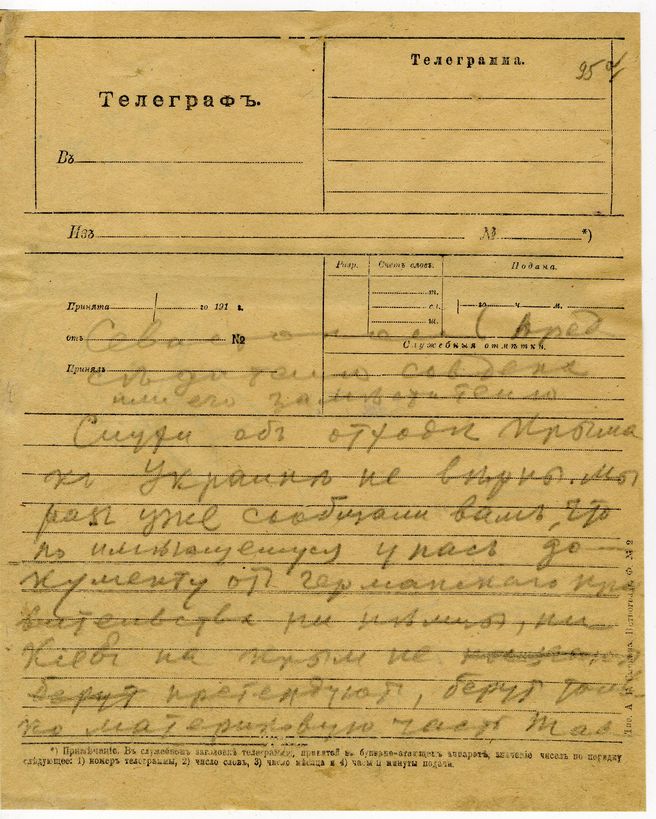 Телеграмма.
95
Телеграфъ.
Въ
Изъ № *)
Разр. Счетъ словъ. Подача.
Принята го 191 г. го ч. м.
отъ №
Служебныя отмѣтки.
Севастополь (пред
Принялъ
сѣдателю совдепа
или его замѣстителю
Слухи объ отходѣ Крыма
къ Украинѣ не вѣрны. Мы
раз уже сообщали вамъ, что
по имѣющемуся у насъ до
кументу отъ германскаго пра
вительства ни нѣмцы, ни
Кіевъ на Крым не
берут претендуют, берут толь
ко материковую часть Тав
*) Примѣчаніе. Въ служебномъ заголовкѣ телеграммы, принятой на буквопечатающемъ аппаратѣ, значеніе чиселъ по порядку
слѣдующее: 1) номеръ телеграммы, 2) число словъ, 3) число мѣсяца и 4) часы и минуты подачи.
Ф. № 2